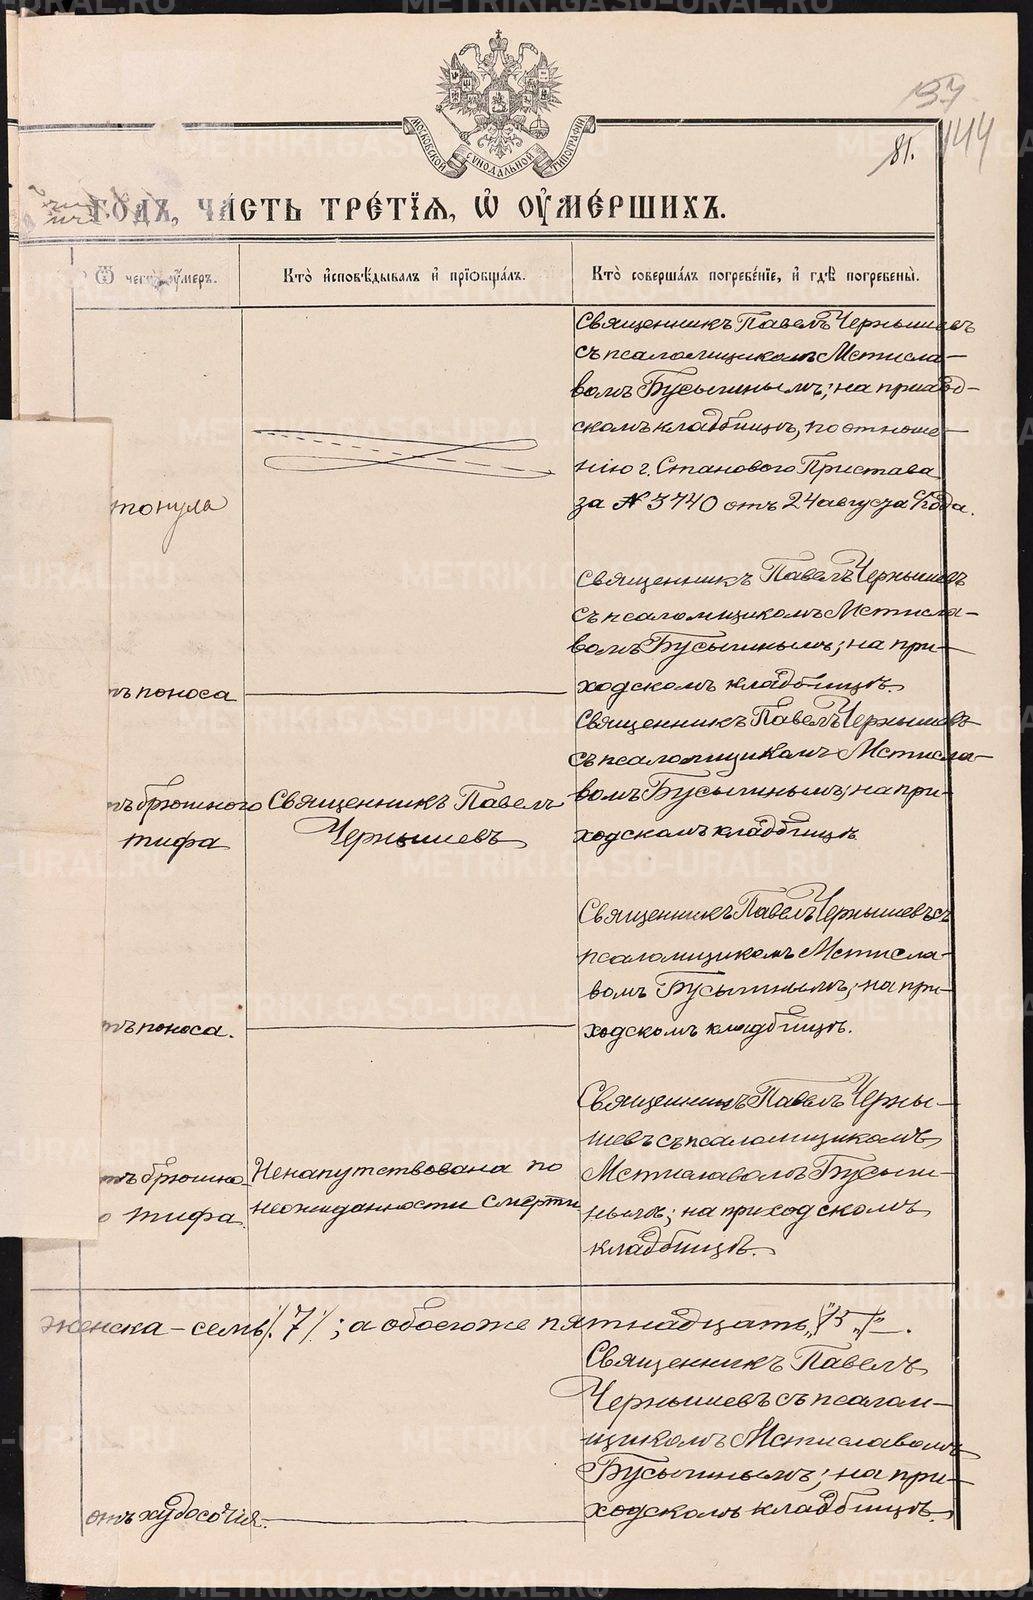 METRIKI.GASO-URAL.RU
МОСКОВСКОЙ СѴНОДАЛЬНОЙ ТИПОГРАФІИ
137
81. 144
ГОДЪ, ЧАСТЬ ТРЕТІЯ, Ѡ ОУМЕРШИХЪ.
Ѿ чего оумеръ.
Кто исповѣдывалъ и пріобщалъ.
Кто совершалъ погребеніе, и гдѣ погребены.
тонула
Священникъ Павелъ Чернышевъ
съ псаломщикомъ Мстисла-
вомъ Бусыгинымъ; на приход-
скомъ кладбищѣ, по отноше-
нію г. Станового Пристава
за № 3740 отъ 24 августа с/года.
тъ поноса
Священникъ Павелъ Чернышевъ
съ псаломщикомъ Мстисла-
вомъ Бусыгинымъ; на при-
ходскомъ кладбищѣ.
тъ брюшного
тифа
Священникъ Павелъ
Чернышевъ
Священникъ Павелъ Чернышевъ
съ псаломщикомъ Мстисла-
вомъ Бусыгинымъ; на при-
ходскомъ кладбищѣ
тъ поноса.
Священникъ Павелъ Чернышевъ съ
псаломщикомъ Мстисла-
вомъ Бусыгинымъ; на при-
ходскомъ кладбищѣ.
тъ брюшно
о тифа.
Ненапутствована по
неожиданности смерти
Священникъ Павелъ Черны-
шевъ съ псаломщикомъ
Мстиславомъ Бусыги-
нымъ; на приходскомъ
кладбищѣ.
женска - семь /.7./; а обоего же пятнадцать /"15"/ .
отъ худосочія.
Священникъ Павелъ
Чернышевъ съ псалом-
щикомъ Мстиславомъ
Бусыгинымъ; на при-
ходскомъ кладбищѣ.